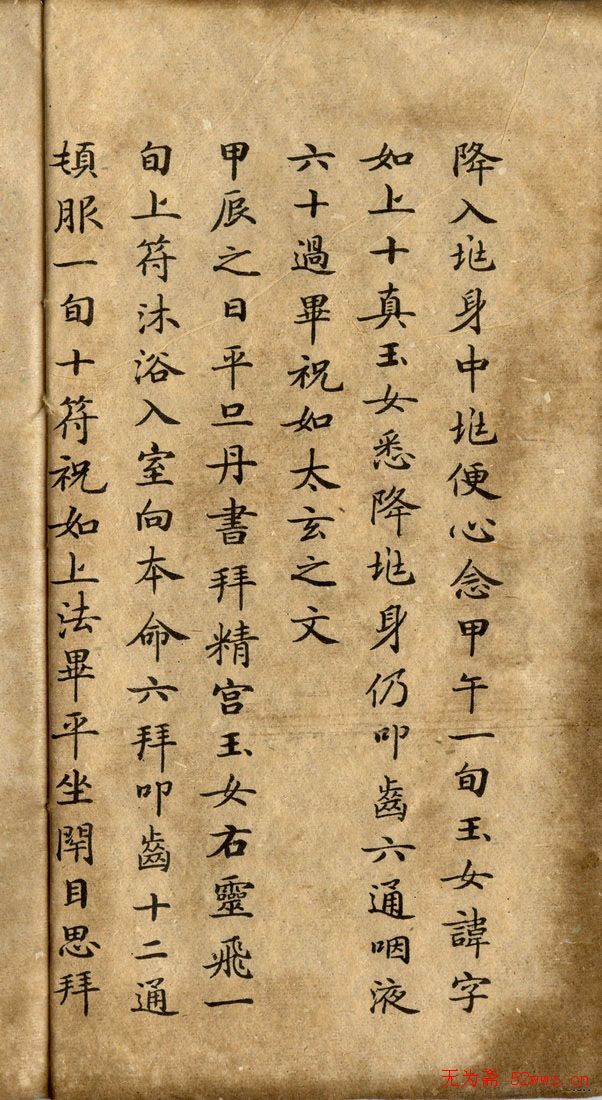 降入兆身中兆便心念甲午一旬玉女諱字
如上十真玉女悉降兆身仍叩齒六通咽液
六十過畢祝如太玄之文
甲辰之日平旦丹書拜精宮玉女右靈飛一
旬上符沐浴入室向本命六拜叩齒十二通
頓服一旬十符祝如上法畢平坐閉目思拜
无为斋 52wwz.cn